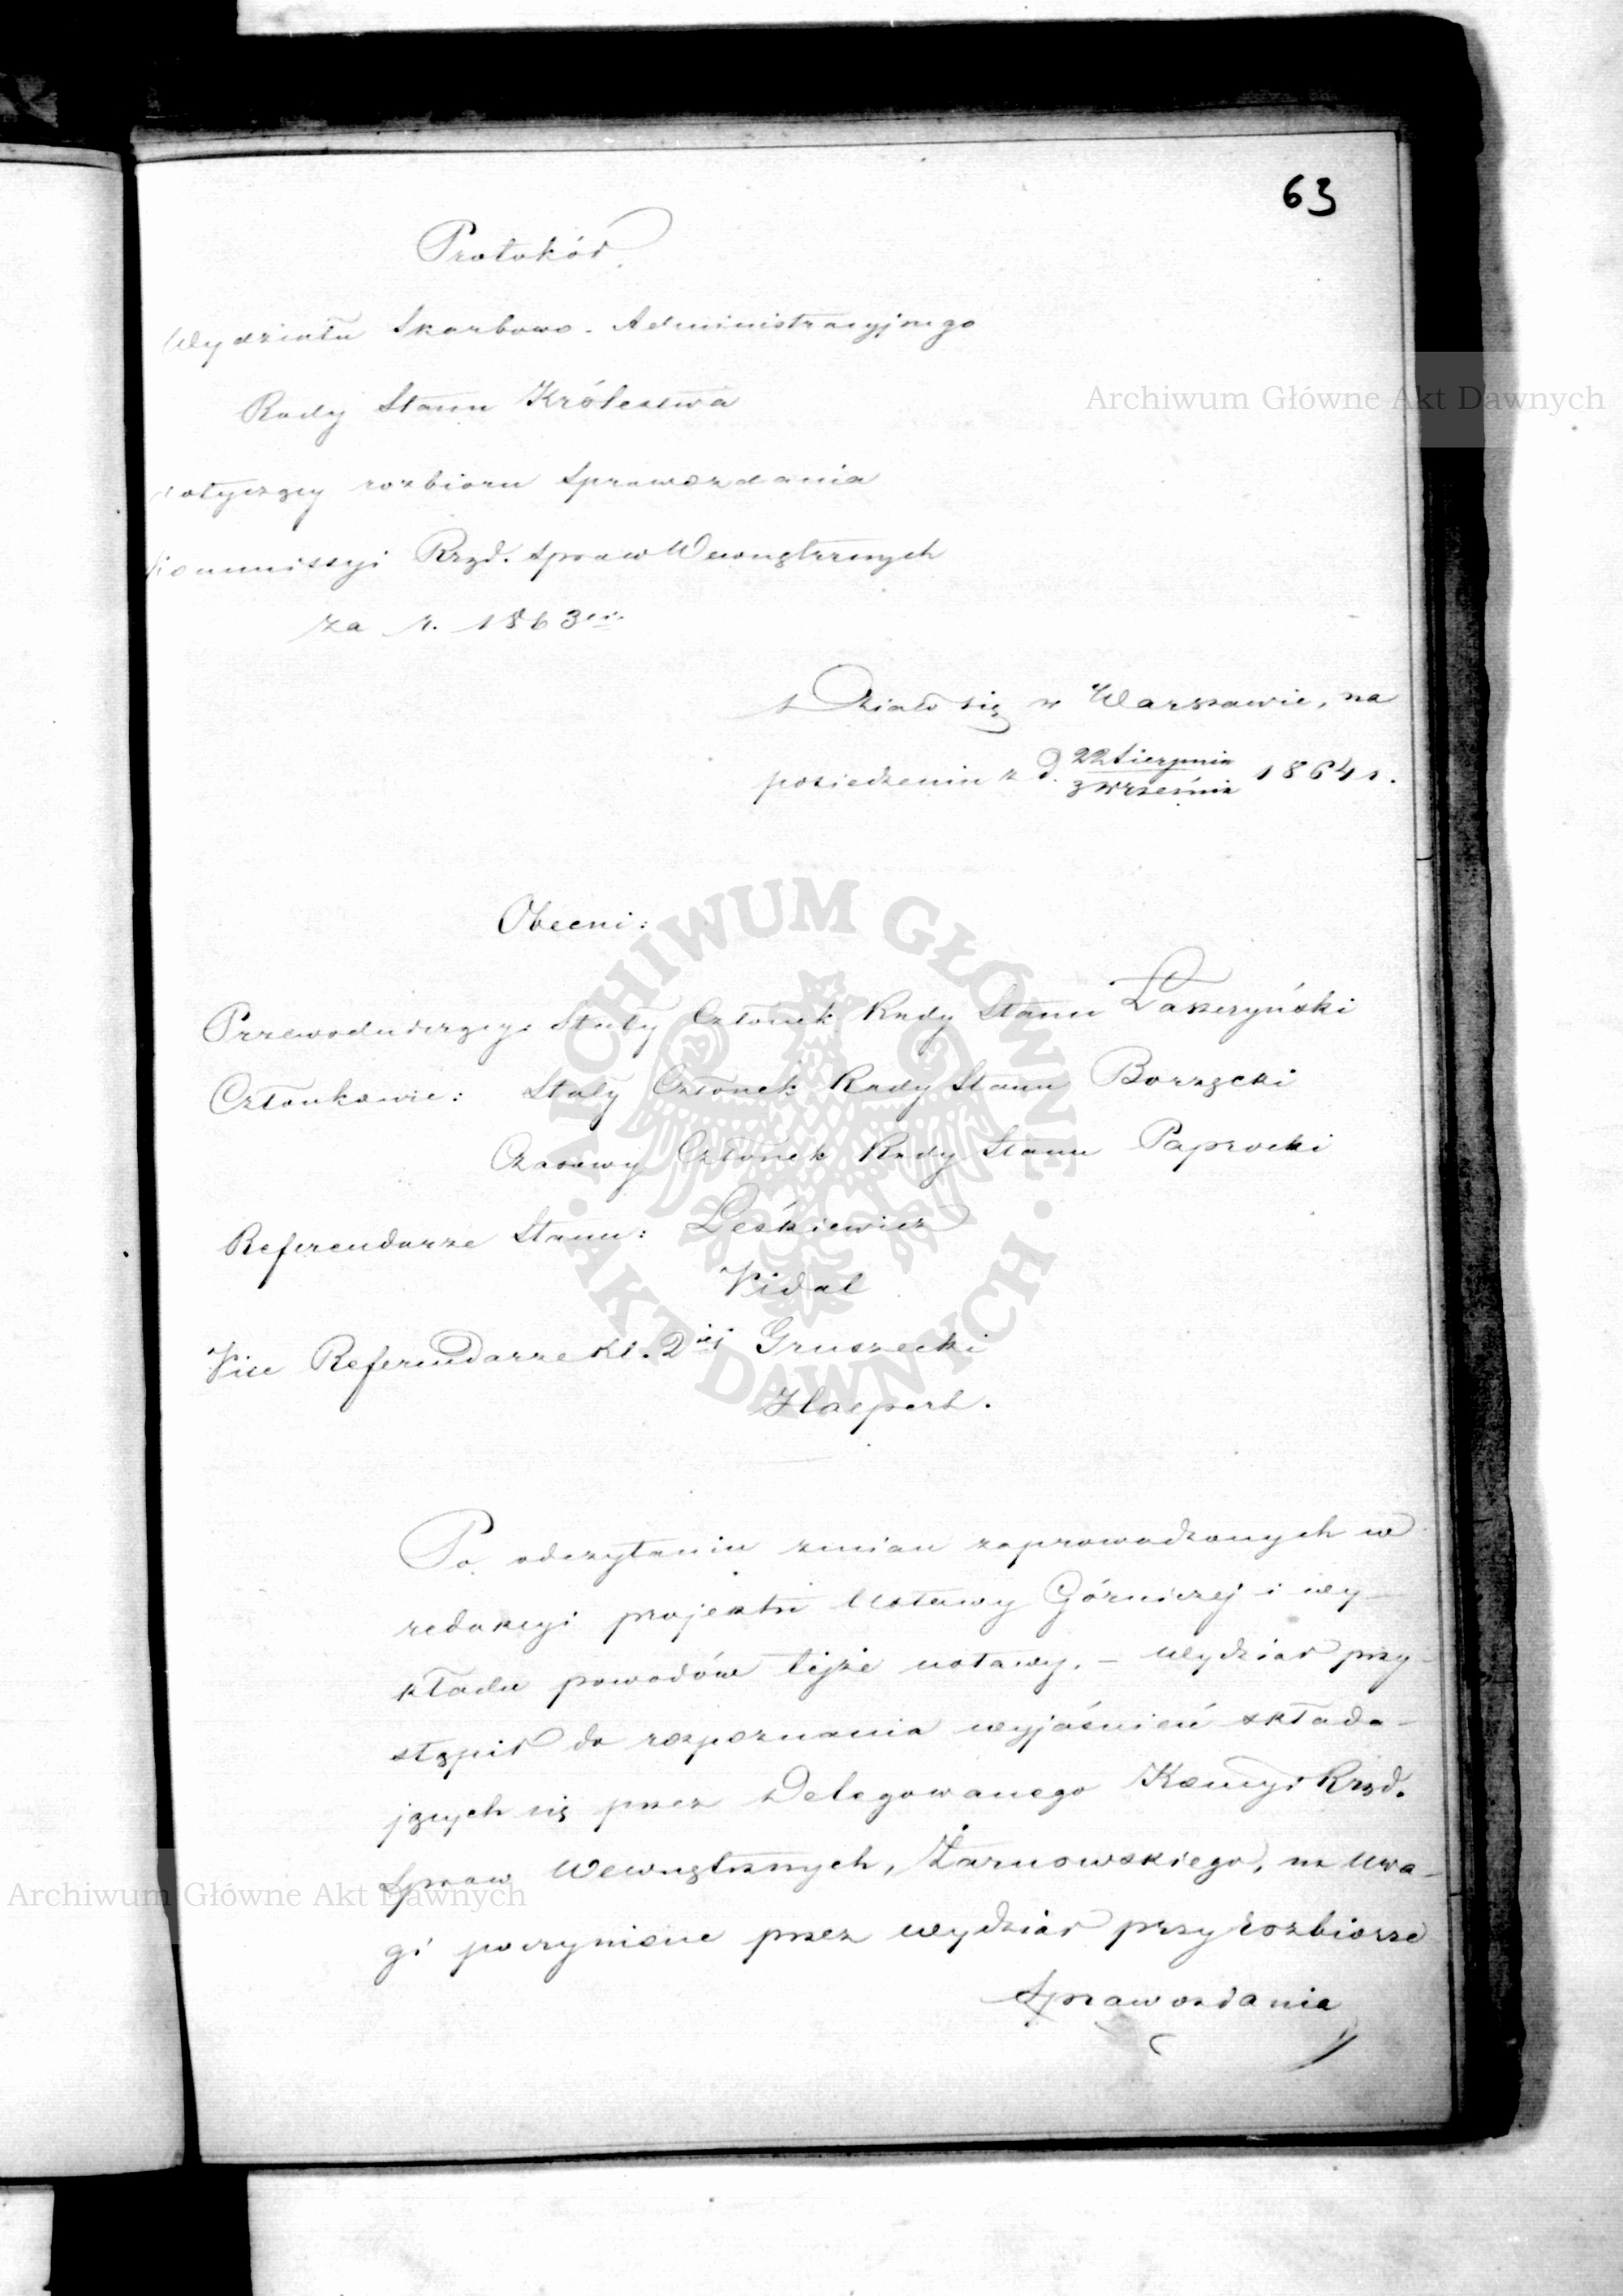 63
Protokół
Wydziału Skarbowo-Administracyjnego
Rady Stanu Królestwa
dotyczący rozbioru Sprawozdania
Kommissyi Rząd. Spraw Wewnętrznych
za r. 1863ci.
Działo się w Warszawie, na
posiedzeniu z d. 22 Sierpnia / 3 Września 1864 r.
Obecni:
Przewodniczący: Stały Członek Rady Stanu Łaszczyński
Członkowie: Stały Członek Rady Stanu Borzęcki
Czasowy Członek Rady Stanu Paprocki
Referendarze Stanu: Leśkiewicz
Vidal
Vice Referendarze Kl. 2iéj Gruszecki
Halpert.
Po odczytaniu zmian zaprowadzonych w
redakcyi projektu Ustawy Górniczej i wy-
kładu powodów tejże ustawy, – Wydział przy-
stąpił do rozpoznania wyjaśnień składa-
jących się przez Delegowanego Kommyi Rząd.
Spraw Wewnętrznych, Żarnowskiego, na Uwa-
gi poczynione przez Wydział przy rozbiorze
Sprawozdania
Archiwum Główne Akt Dawnych
Archiwum Główne Akt Dawnych
ARCHIWUM GŁÓWNE · AKT DAWNYCH ·